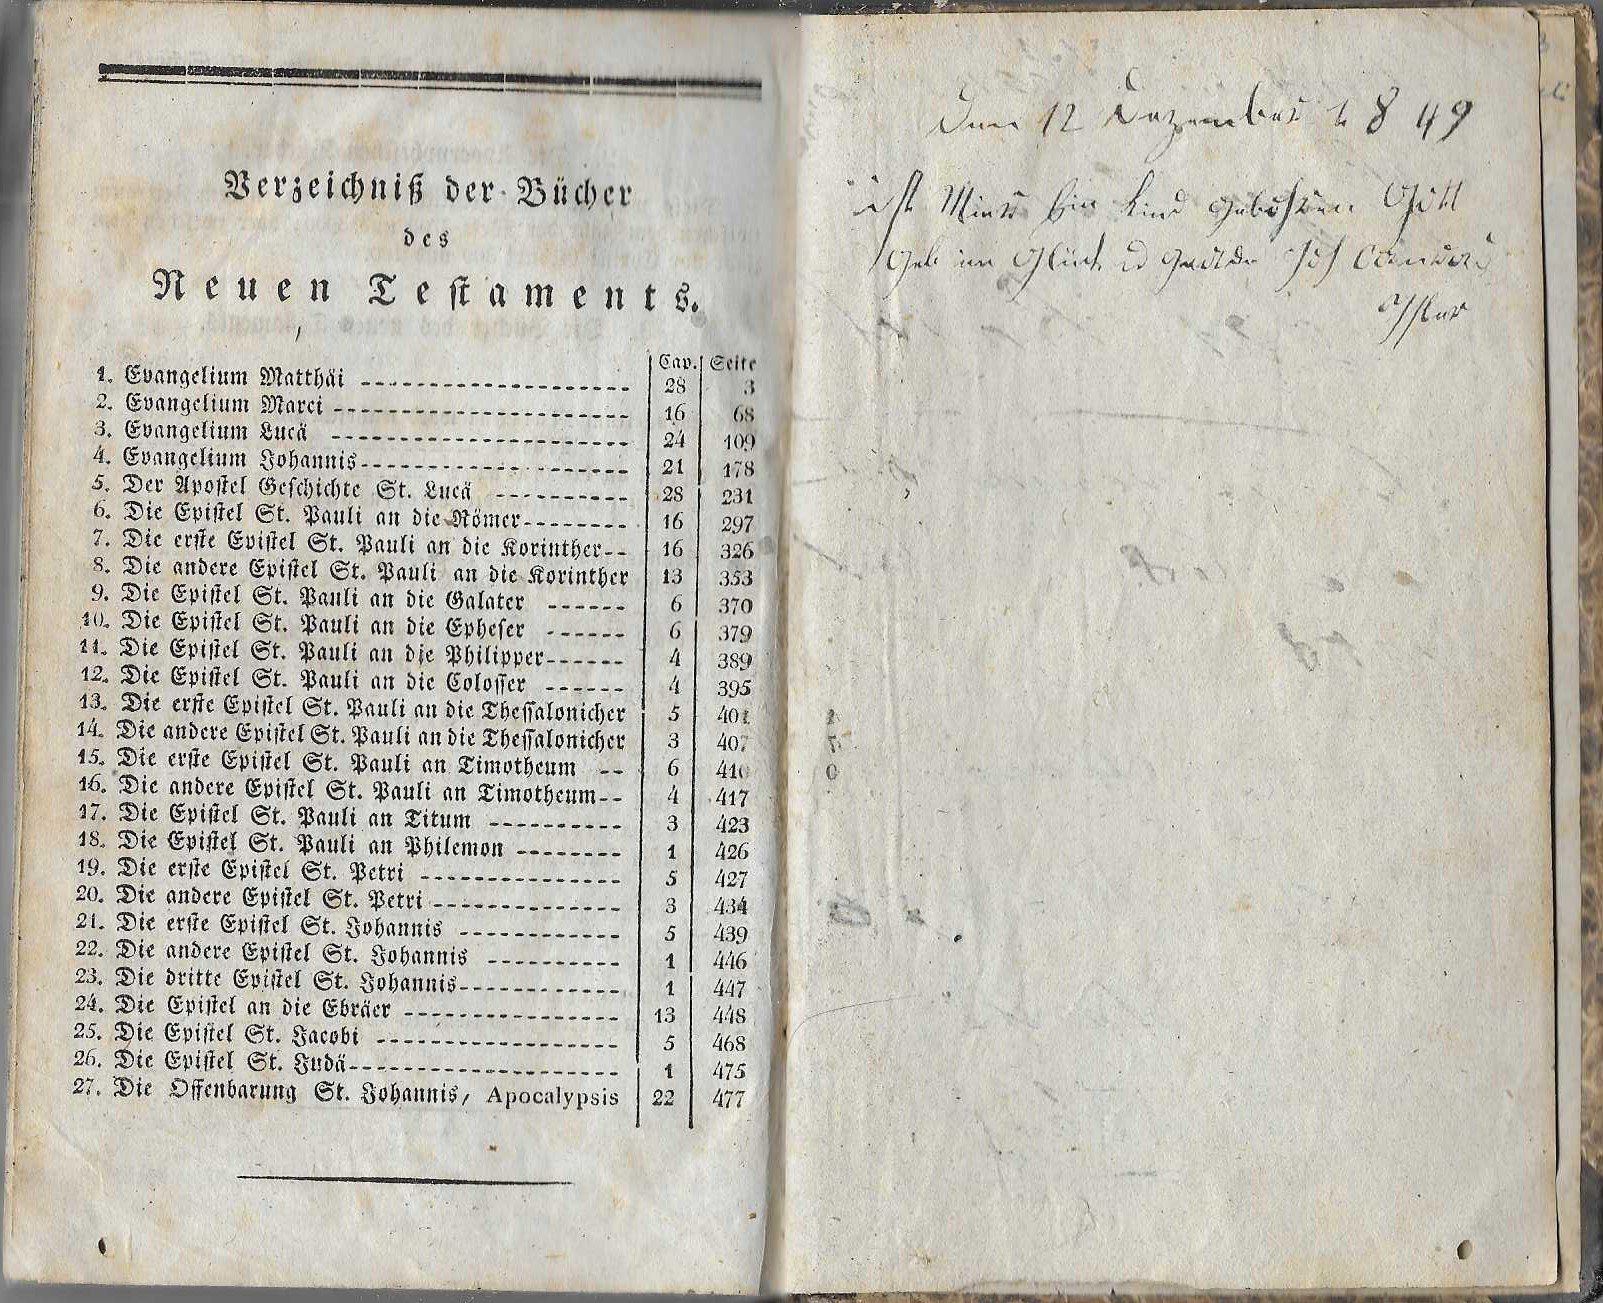 Verzeichniß der Bücher
des
Neuen Testaments.
Cap. Seite
1. Evangelium Matthäi 28 3
2. Evangelium Marci 16 68
3. Evangelium Lucä 24 109
4. Evangelium Johannis 21 178
5. Der Apostel Geschichte St. Lucä 28 231
6. Die Epistel St. Pauli an die Römer 16 297
7. Die erste Epistel St. Pauli an die Korinther 16 326
8. Die andere Epistel St. Pauli an die Korinther 13 353
9. Die Epistel St. Pauli an die Galater 6 370
10. Die Epistel St. Pauli an die Epheser 6 379
11. Die Epistel St. Pauli an die Philipper 4 389
12. Die Epistel St. Pauli an die Colosser 4 395
13. Die erste Epistel St. Pauli an die Thessalonicher 5 401
14. Die andere Epistel St. Pauli an die Thessalonicher 3 407
15. Die erste Epistel St. Pauli an Timotheum 6 410
16. Die andere Epistel St. Pauli an Timotheum 4 417
17. Die Epistel St. Pauli an Titum 3 423
18. Die Epistel St. Pauli an Philemon 1 426
19. Die erste Epistel St. Petri 5 427
20. Die andere Epistel St. Petri 3 434
21. Die erste Epistel St. Johannis 5 439
22. Die andere Epistel St. Johannis 1 446
23. Die dritte Epistel St. Johannis 1 447
24. Die Epistel an die Ebräer 13 448
25. Die Epistel St. Jacobi 5 468
26. Die Epistel St. Judä 1 475
27. Die Offenbarung St. Johannis, Apocalypsis 22 477
Den 12 Dezember 1849
ist Mier Ein Kind gebohren Gott
Geb im Glück u Joh